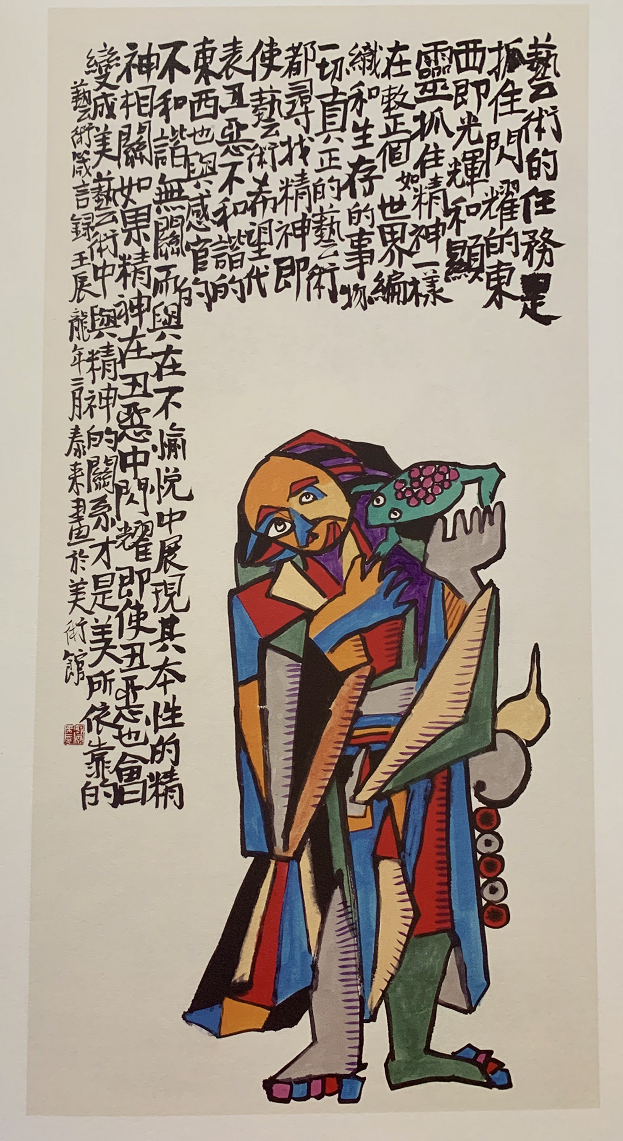 藝術的任務是
抓住閃耀的東
西即光輝和顯
靈抓住精神一樣
在整個如世界編
織和生存的事物
一切真正的藝術
都尋找精神即
使藝術希望代
表丑惡不和諧的
東西也與感官的
不和諧無關而與在不愉悅中展現其本性的精
神相關如果精神在丑惡中閃耀即使丑惡也會
變成美藝術中與精神的關系才是美所依靠的
藝術箴言録壬辰龍年二月泰來畫於美術館